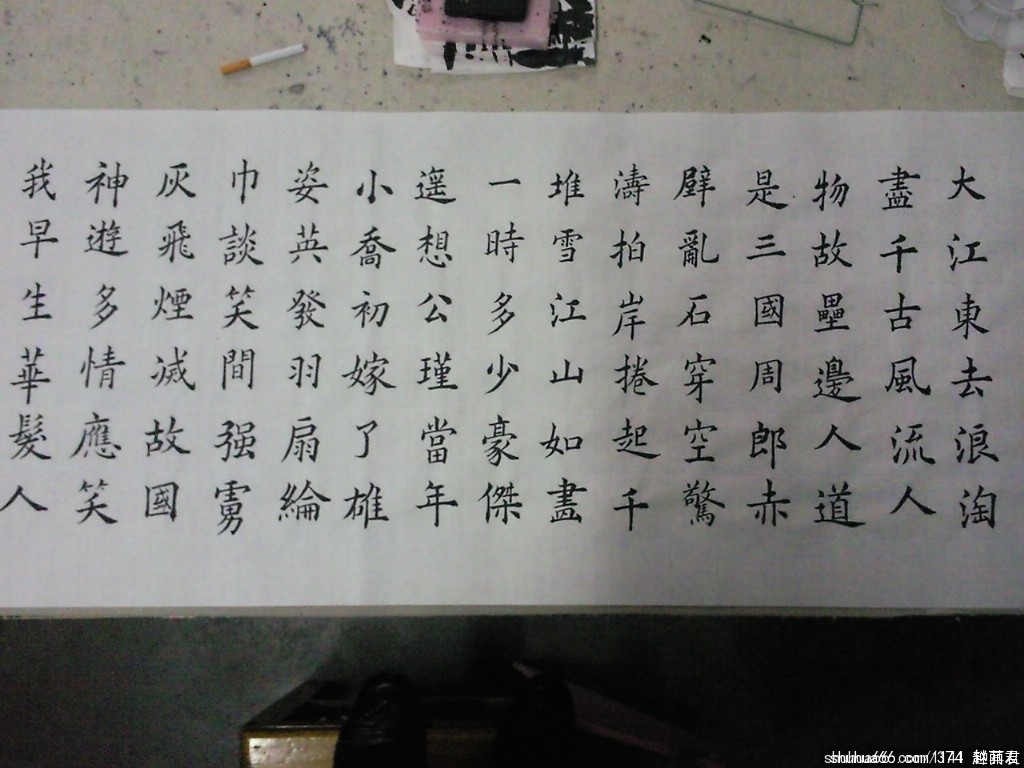 大江東去浪淘
盡千古風流人
物故壘邊人道
是三國周郎赤
壁亂石穿空驚
濤拍岸捲起千
堆雪江山如畫
一時多少豪傑
遥想公瑾當年
小喬初嫁了雄
姿英發羽扇綸
巾談笑間强虜
灰飛煙滅故國
神遊多情應笑
我早生華髮人